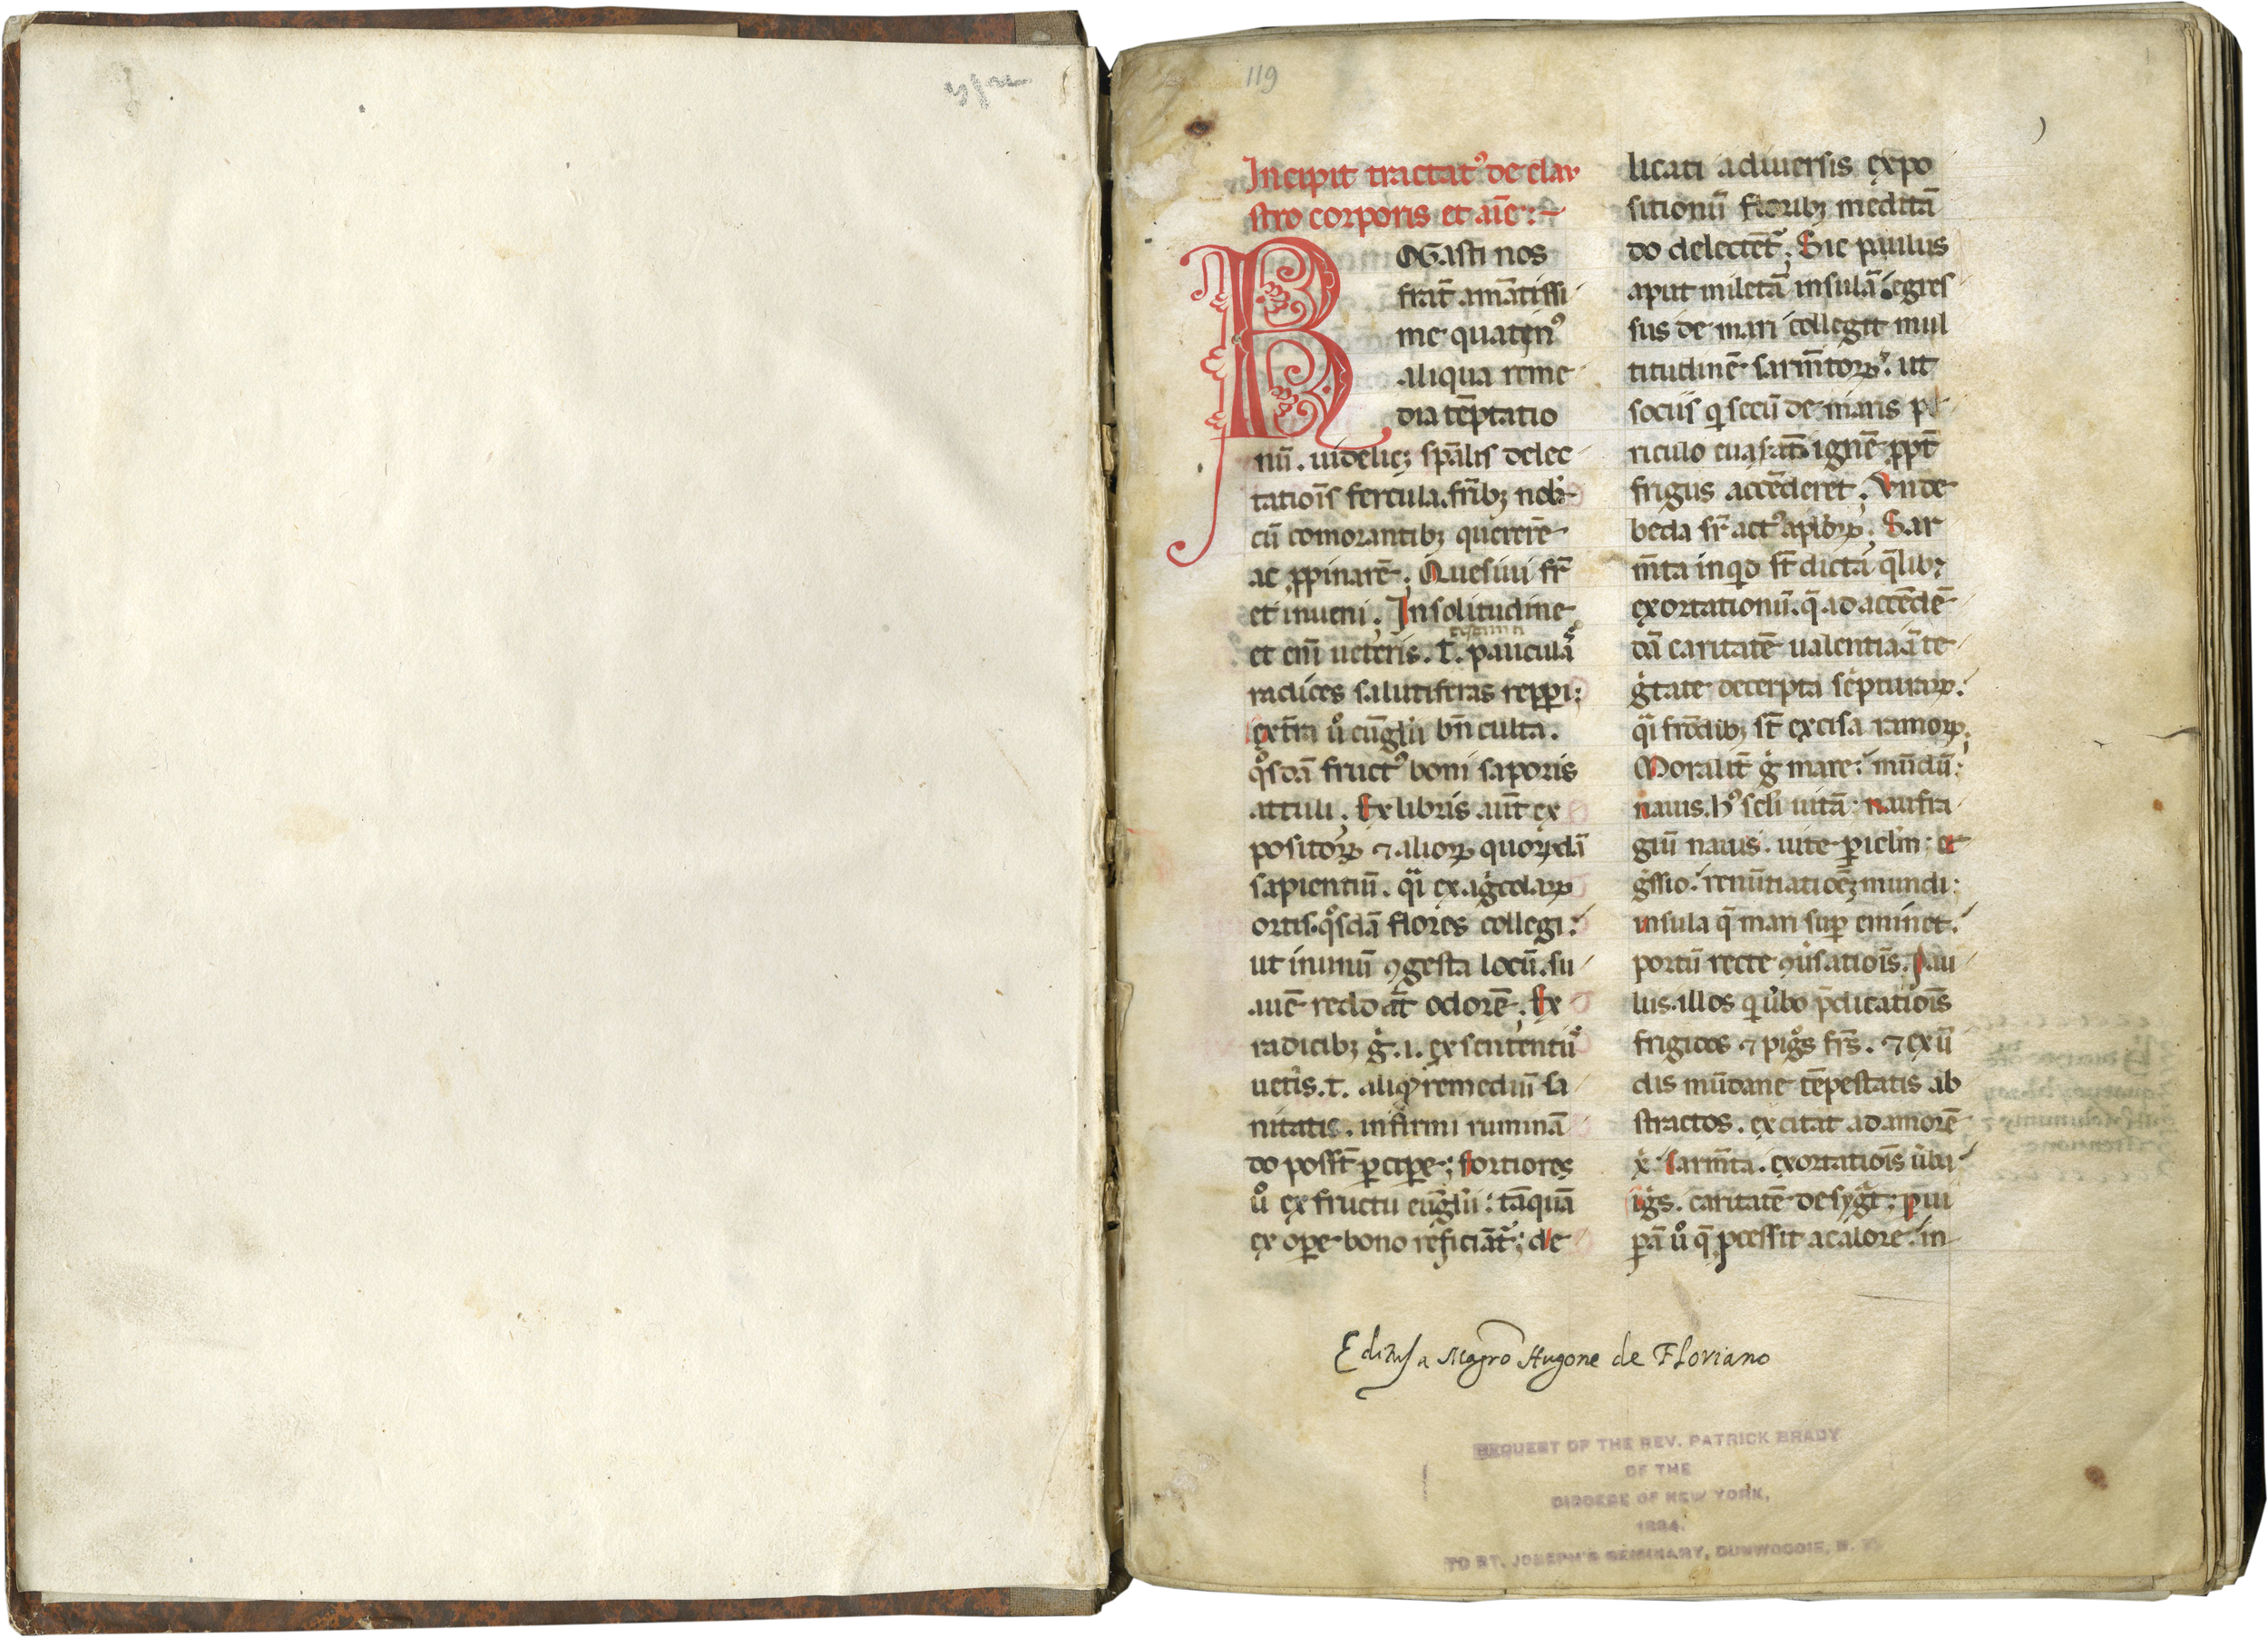 119
Incipit tractat⁹ de clau
stro corporis et aīe :~
ROGasti nos
frat̄ amātissi
me quatin⁹
aliqua reme
dia tēptatio
nū . uidelicꝫ sp̄alis delec
tatiōis fercula. fr̄ibꝫ nob̄
cū comorantibꝫ quererē
ac ꝓpinarē . Quesiui fr̄
et inueni . In solitudine
et eni ueteris . t̄ . pauculas
radices salutiferas repperi ;
extra u̾o eūglii bn̄ culta .
qͦsdā fruct⁹ boni saporis
attuli . Ex libris aut̄ ex
positoꝝ ⁊ alioꝝ quorūdā
sapientiū . qͣi ex agͥcolaꝝ
ortis. qͦsdā flores collegi :
ut in unū ꝯgesta locū . su
auē reddāt odorē . Ex
radicibꝫ gͦ .i. ex sententiis
uet̄is . t̄ . aliqͦ remediū sa
nitatis . infirmi ruminā
do possīt ꝑcipe ; fortiores
u̾o ex fructu eūglii : tāquā
ex oꝑe bono reficiāt̾ ; de
licati a diuersis expo
sitionū floribꝫ meditā
do delectēt̾ ; Sic paulus
aput miletā insulā egres
sus de mari collegit mul
titudinē sarm̄toꝝ : ut
sociis qͥ secū de maris pe
riculo euasāt . ignē ꝓpt̄
frigus accēderet . Vnde
beda sr̄ act⁹ ap̄loꝝ . Sar
m̄ta inqͥd st̄ dicta qͣlibꝫ
exortationū . q̄ ad accēdē
dā caritatē ualentia ā te
gͥtate decerpta sc̄pturaꝝ .
qͣi frōdibꝫ st̄ excisa ramoꝝ .
Moralit̄ gͦ mare : mūdū ;
nauis . h⁹ sc̄li uitā ; naufra
giū nauis . uite ꝑicl̄m ; e
gͥssio : renūtiatiōeꝫ mundi ;
insula q̄ mari suꝑ eminet .
portū recte ꝯu̾satiōis . Pau
lus . illos qͥ u̾bo p̄dicatiōis
frigidos ⁊ pigͦs fr̄s . ⁊ ex ū
dis mūdane tēpestatis ab
stractos . excitat ad amorē
x̄ . sarm̄ta . exortatiōis u̾ba
igͥs . caritatē desygͣt ; ꝑ ui
ꝑā u̾o q̄ pͦcessit a calore . in
Editus a Magro Hugone de Floriano
BEQUEST OF THE REV. PATRICK BRADY
OF THE
DIOCESE OF NEW YORK,
1894.
TO ST. JOSEPH'S SEMINARY, DUNWOODIE, N. Y.